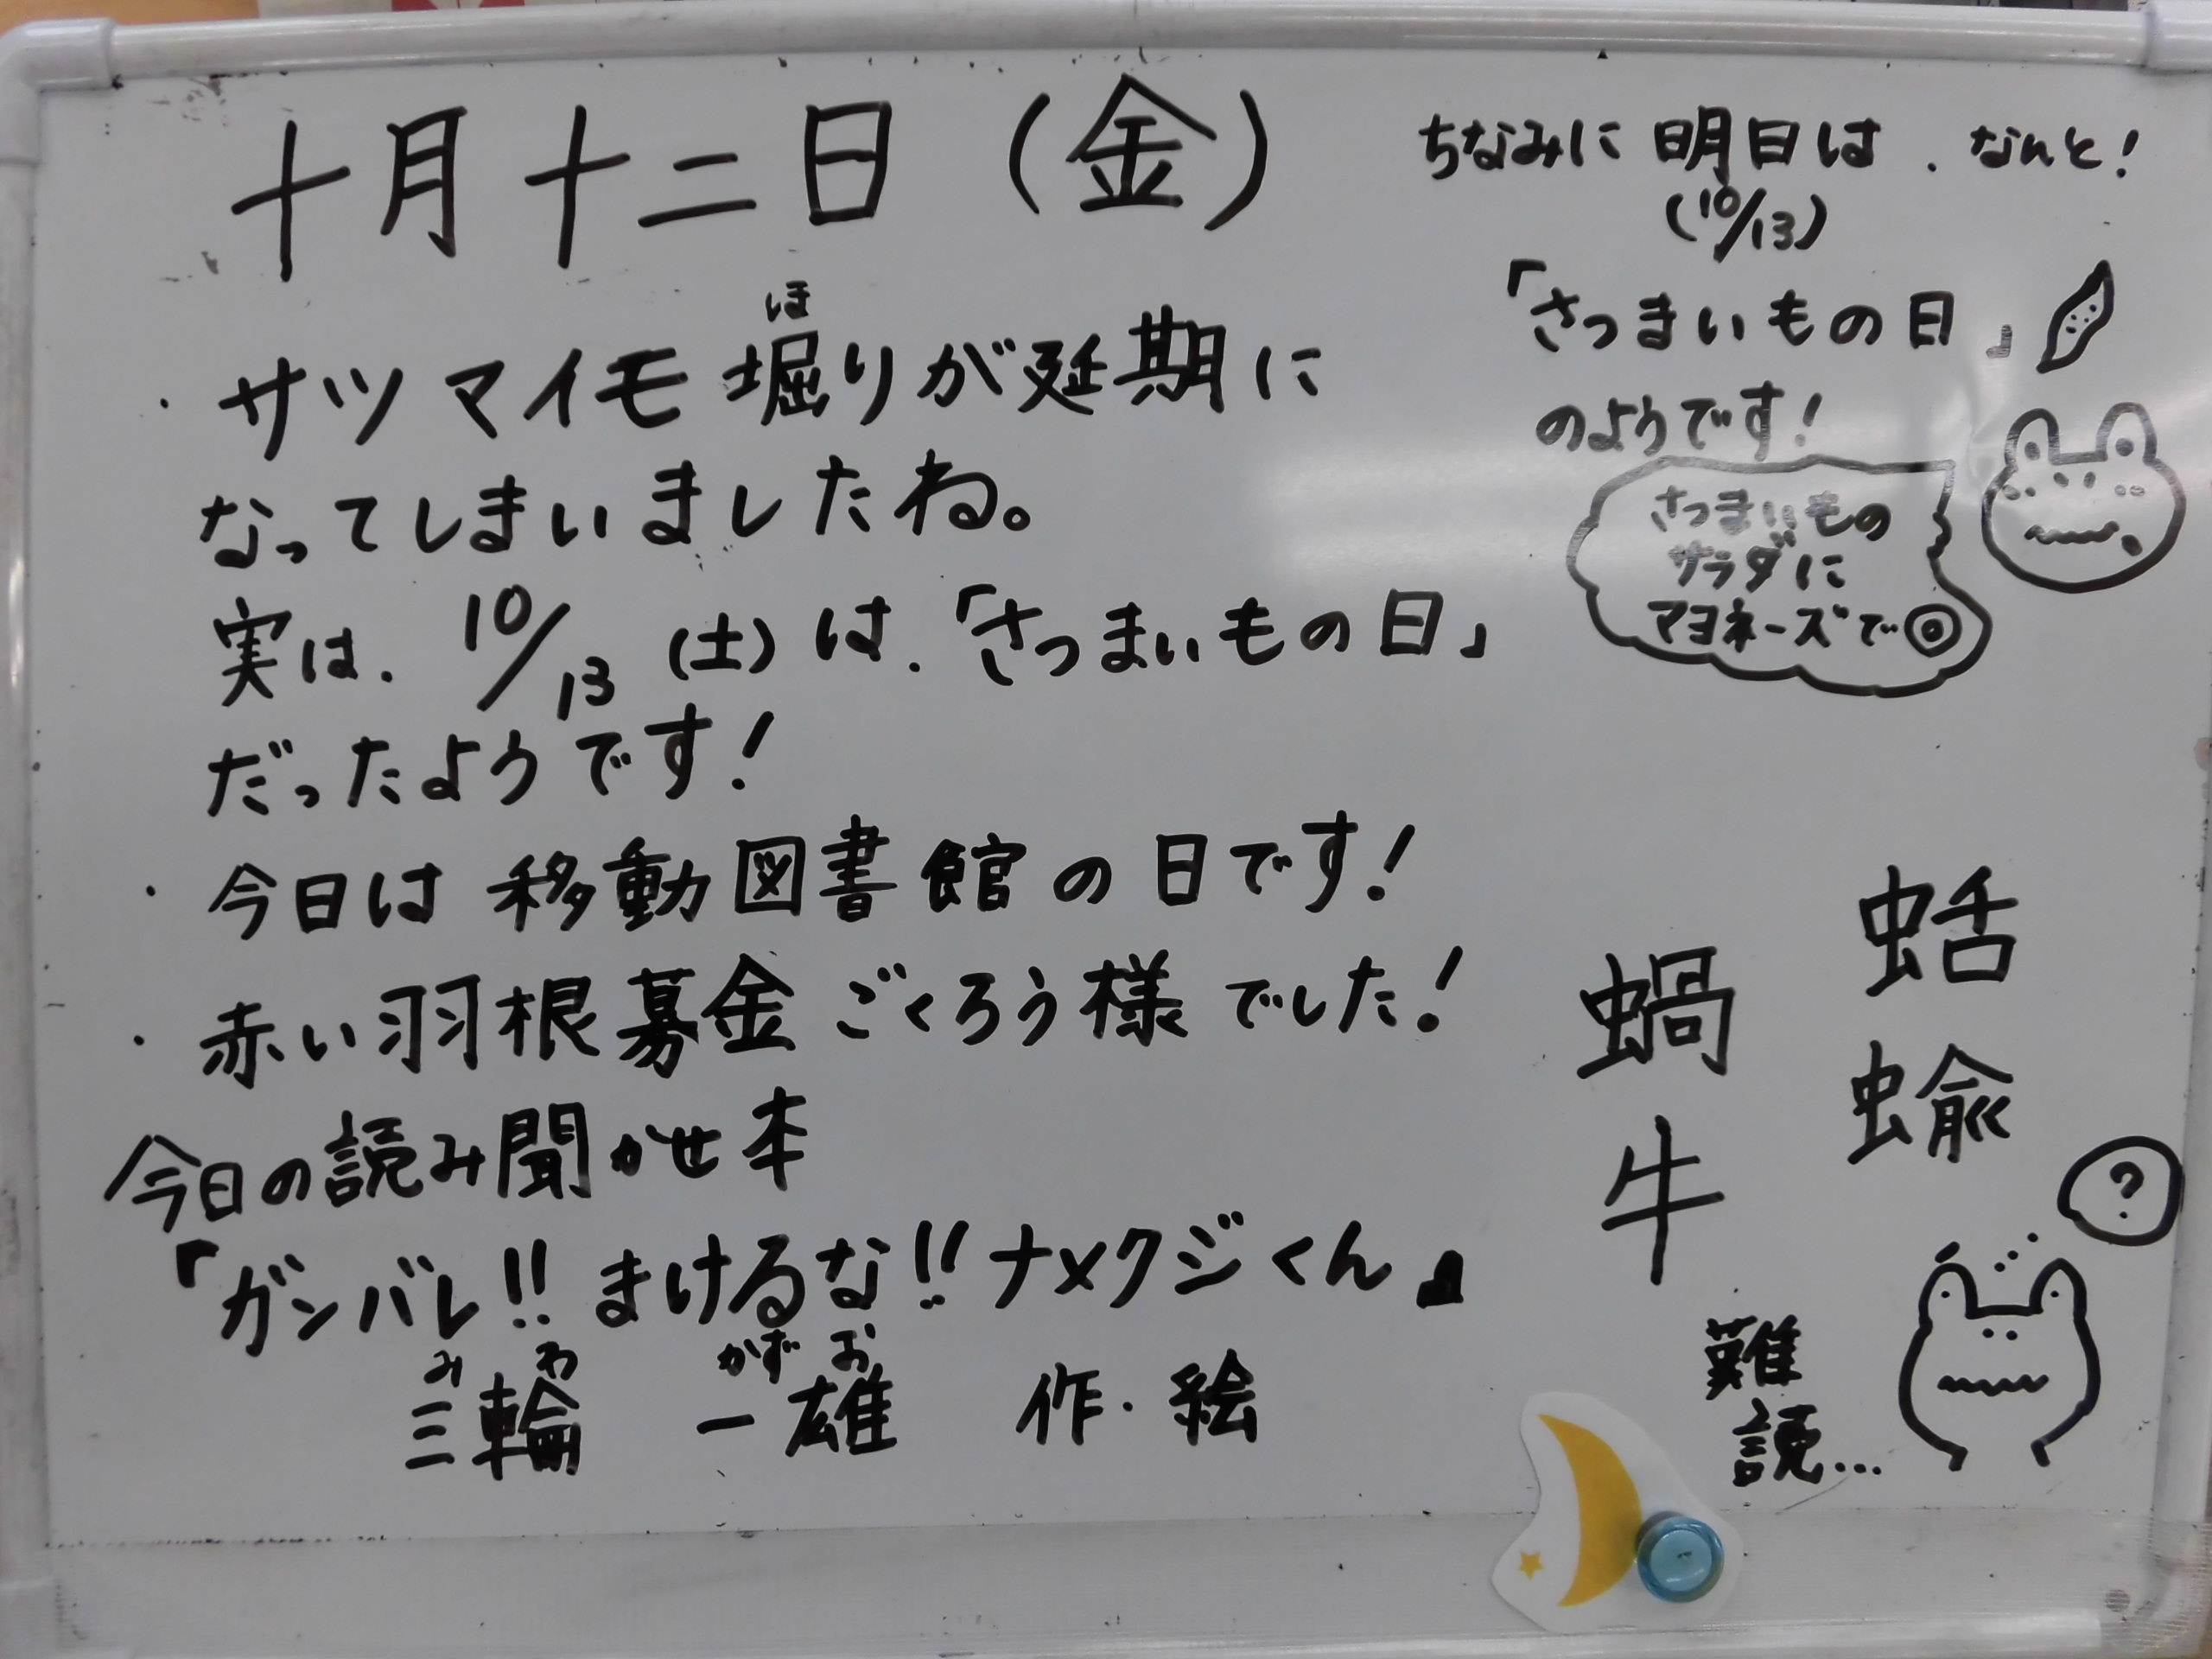 十月十二日（金）
・サツマイモ堀りが延期に
ほ
なってしまいましたね。
実は、10/13（土）は、「さつまいもの日」
だったようです！
・今日は移動図書館の日です！
・赤い羽根募金ごくろう様でした！
今日の読み聞かせ本
『ガンバレ!!まけるな!!ナメクジくん』
みわ かずお
三輪 一雄 作・絵
ちなみに明日は、なんと！
（10/13）
「さつまいもの日」
のようです！
さつまいもの
サラダに
マヨネーズで◎
蛞蝓
蝸牛
？
難読…